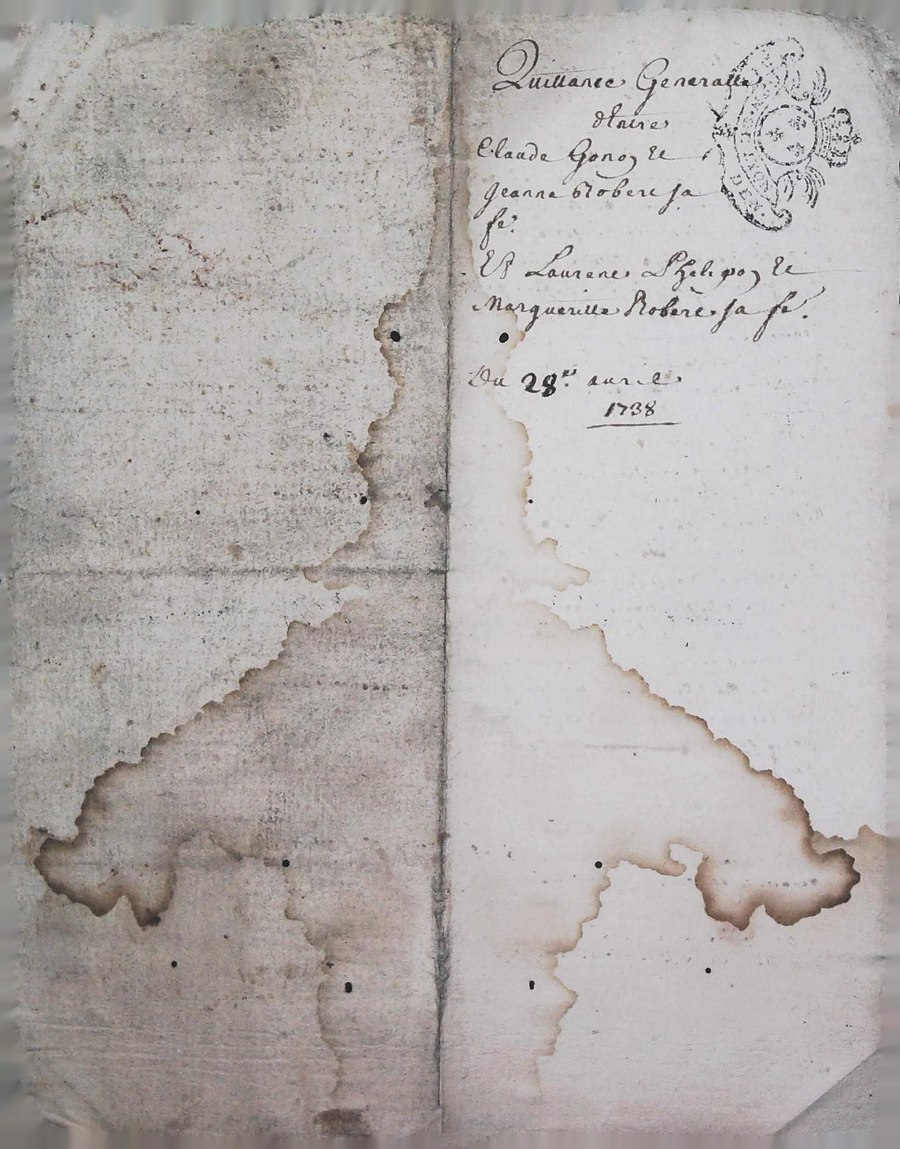 Quittance Generalle
d'Entre
Claude Gono, et
Jeanne Robert sa
fe.
Et Laurent Phelipo, et
Margueritte Robert sa fe.
Du 28e. auril
1738